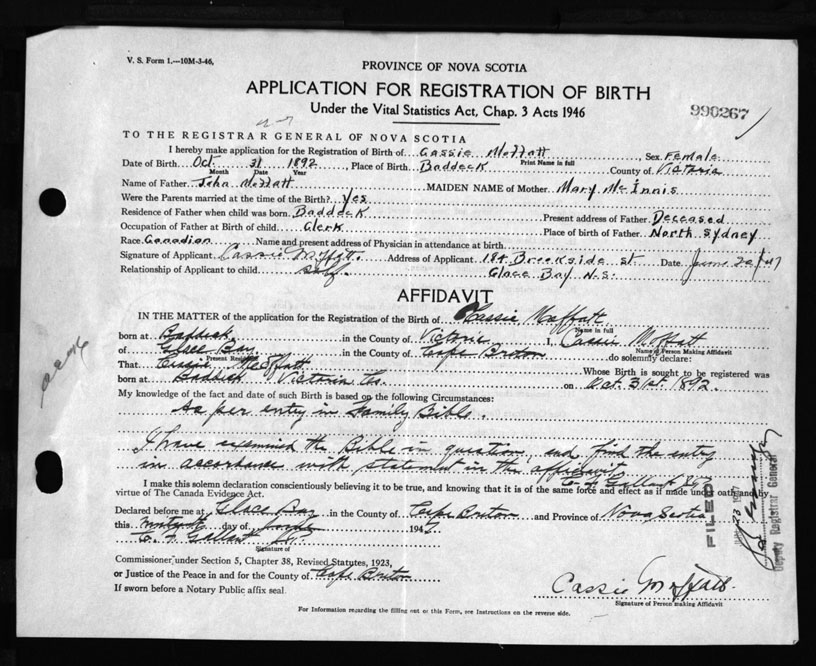 V. S. Form 1.—10M-3-46,
PROVINCE OF NOVA SCOTIA
APPLICATION FOR REGISTRATION OF BIRTH
Under the Vital Statistics Act, Chap. 3 Acts 1946
990267
TO THE REGISTRAR GENERAL OF NOVA SCOTIA
I hereby make application for the Registration of Birth of Cassie Moffatt, Sex Female
Print Name in full
Date of Birth Oct 31 1892, Place of Birth Baddeck County of Victoria
Month Date Year
Name of Father John Moffatt MAIDEN NAME of Mother Mary McInnis
Were the Parents married at the time of the Birth? Yes
Residence of Father when child was born Baddeck Present address of Father Deceased
Occupation of Father at Birth of child Clerk Place of birth of Father North Sydney
Race Canadian Name and present address of Physician in attendance at birth
Signature of Applicant Cassie Moffatt. Address of Applicant 184 Brookside st Date June 20/47
Relationship of Applicant to child self. Glace Bay N.S.
AFFIDAVIT
IN THE MATTER of the application for the Registration of the Birth of Cassie Moffatt
Name in full
born at Baddeck in the County of Victoria I, Cassie Moffatt
Name of Person Making Affidavit
of Glace Bay in the County of Cape Breton do solemnly declare:
Present Residence
That Cassie Moffatt Whose Birth is sought to be registered was
born at Baddeck Victoria Co. on Oct. 31st. 1892.
My knowledge of the fact and date of such Birth is based on the following Circumstances:
As per entry in Family Bible.
I have examined the Bible in question, and find the entry
in accordance with statement in the affidavit
I make this solemn declaration conscientiously believing it to be true, and knowing that it is of the same force and effect as if made under oath and by
virtue of The Canada Evidence Act.
Declared before me at Glace Bay in the County of Cape Breton and Province of Nova Scotia
this day of 1947
C. F. Gallant J.P.
Signature of
Commissioner under Section 5, Chapter 38, Revised Statutes, 1923,
or Justice of the Peace in and for the County of Cape Breton
If sworn before a Notary Public affix seal.
Cassie Moffatt.
Signature of Person making Affidavit
For Information regarding the filling out of this Form, see Instructions on the reverse side.
FILED
Deputy Registrar General